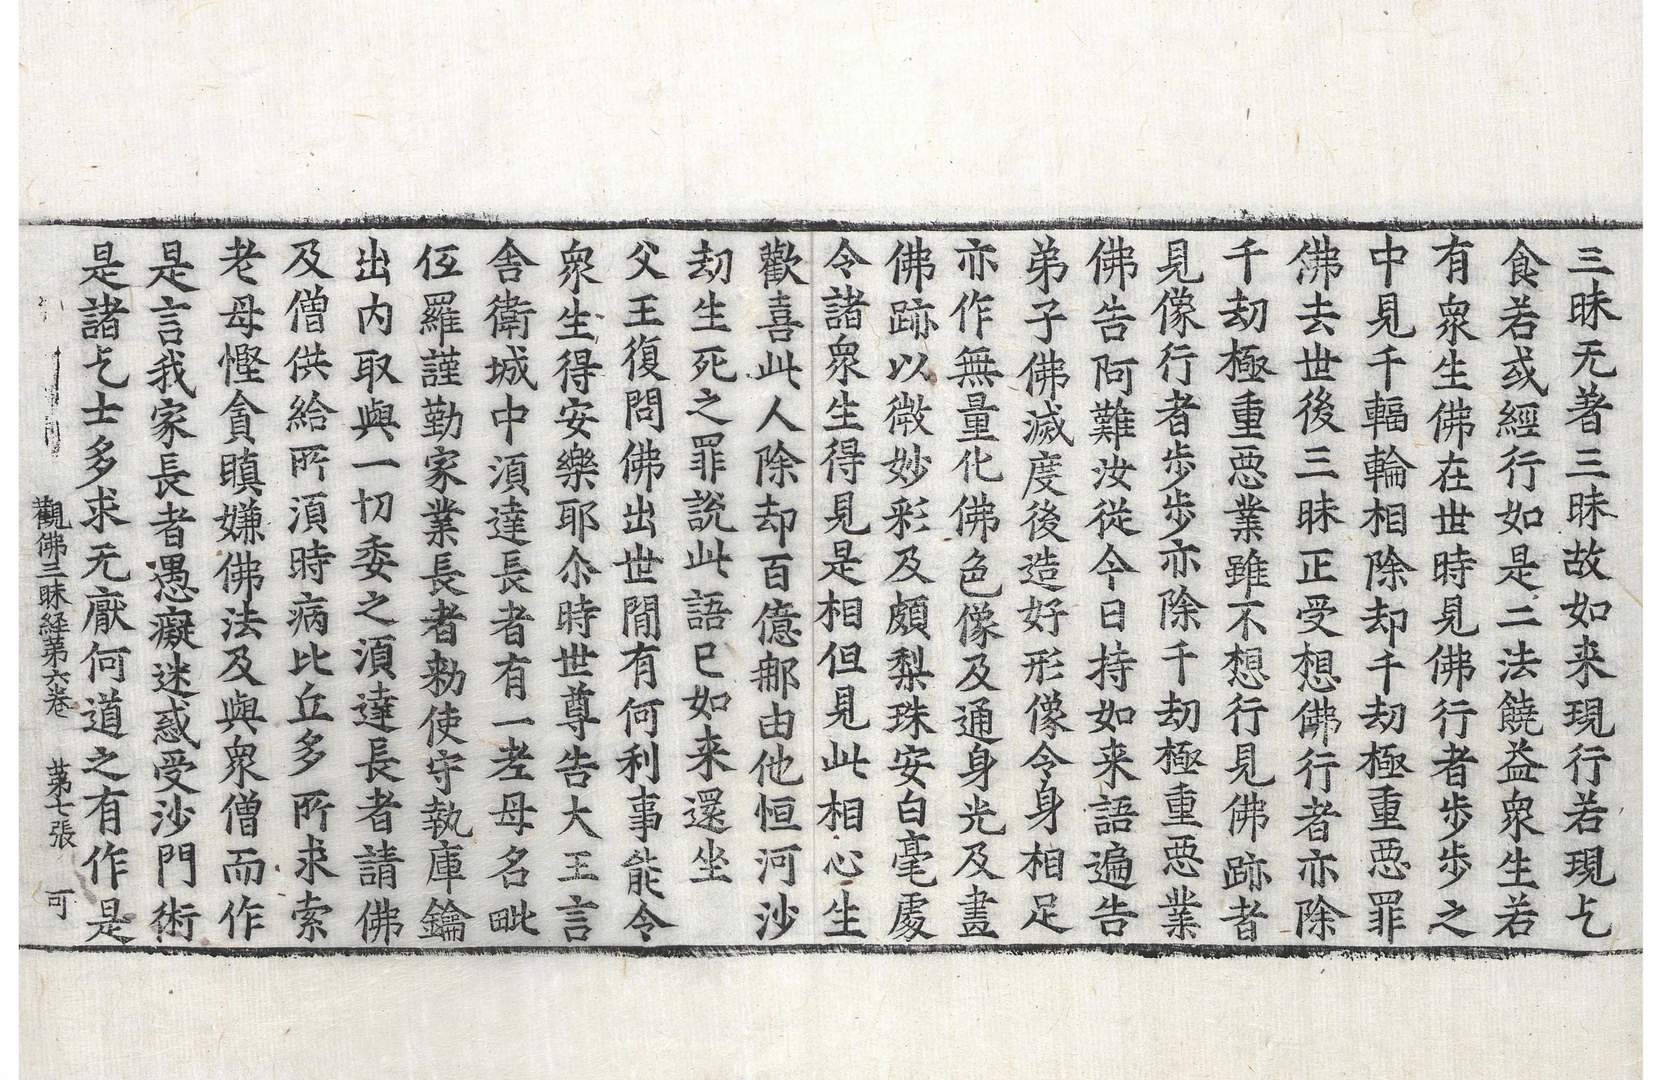 三昧无著三昧故如来現行若現乞
食若或經行如是二法饒益衆生若
有衆生佛在世時見佛行者步步之
中見千輻輪相除却千劫極重惡罪
佛去世後三昧正受想佛行者亦除
千劫極重惡業雖不想行見佛跡者
見像行者步步亦除千劫極重惡業
佛告阿難汝從今日持如来語遍告
弟子佛滅度後造好形像令身相足
亦作無量化佛色像及通身光及畫
佛跡以微妙彩及頗梨珠安白毫處
令諸衆生得見是相但見此相心生
歡喜此人除却百億那由他恒河沙
劫生死之罪說此語已如来還坐
父王復問佛出世間有何利事能令
衆生得安樂耶尒時世尊告大王言
舍衛城中湏達長者有一老母名毗
伍羅謹勤家業長者勑使守執庫鑰
出內取與一切委之湏達長者請佛
及僧供給所湏時病比丘多所求索
老母慳貪瞋嫌佛法及與衆僧而作
是言我家長者愚癡迷惑受沙門術
是諸乞士多求无厭何道之有作是
觀佛三昧経苐六卷 苐七張 可